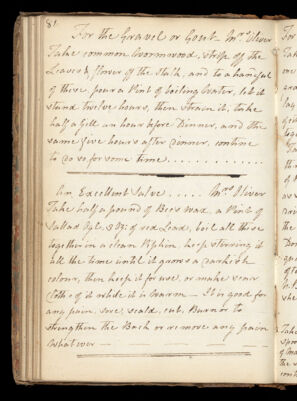 81
For the Gravel or Gout Mrs. Oliver
Take common Wormwood, strip off the
Leaves & flower off the Stalk, and to a handful
of these pour a Pint of boiling Water, let it
stand twelve hours, then strain it, take
half a Gill an hour before Dinner, and the
same five hours after dinner, continue
to do so for some time
An Excellent Salve Mrs. Oliver
Take half a pound of Bees Wax, a Pint of
Sallad Oyl, of red Lead, boil all these
together in a clean Pipkin, keep stirring it
all the time until it grows a darkish
colour, then keep it for use, or make sear
Cloths of it while it is warm — It is good for
any pain, sore, scald, cut, Burn or to
strengthen the Back or remove any pain
whatever